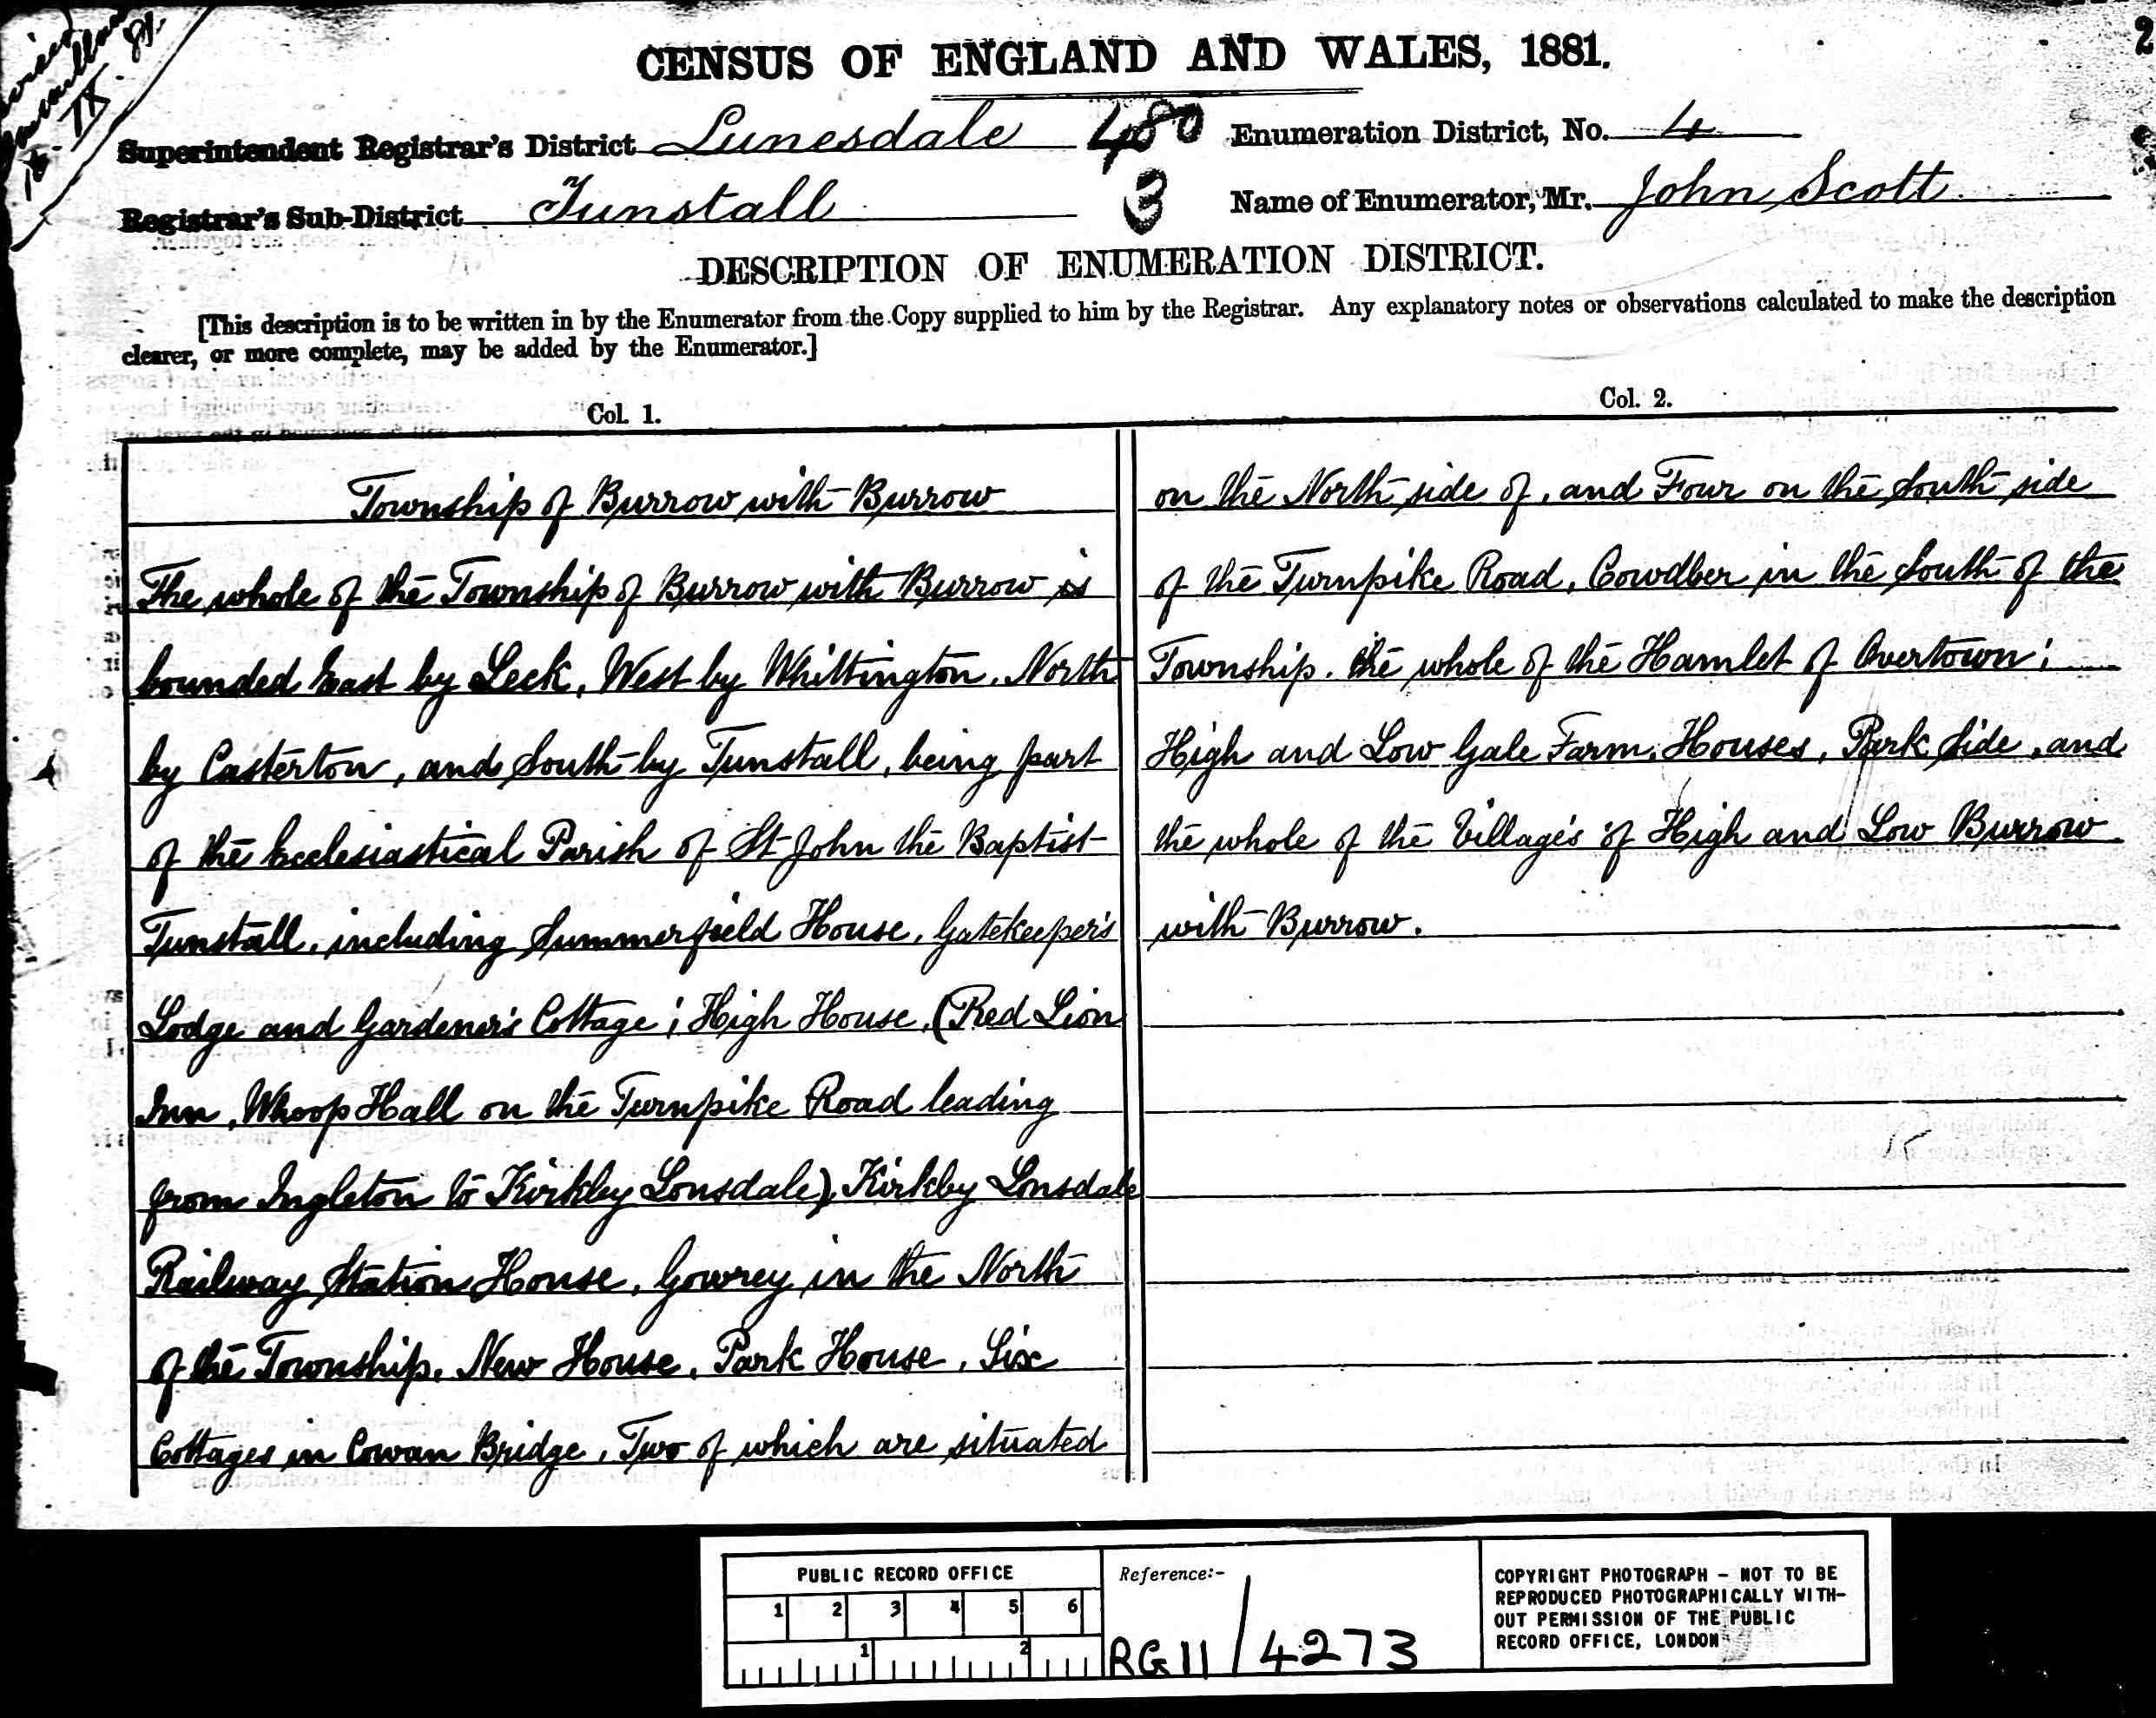 2
CENSUS OF ENGLAND AND WALES, 1881.
Superintendent Registrar's District Lunesdale 480 Enumeration District, No. 4
Registrar's Sub-District Tunstall 3 Name of Enumerator, Mr. John Scott
DESCRIPTION OF ENUMERATION DISTRICT.
[This description is to be written in by the Enumerator from the Copy supplied to him by the Registrar. Any explanatory notes or observations calculated to make the description
clearer, or more complete, may be added by the Enumerator.]
Col. 1.
Township of Burrow with Burrow
The whole of the Township of Burrow with Burrow is
bounded East by Leck, West by Whittington, North
by Casterton, and South by Tunstall, being part
of the Ecclesiastical Parish of St John the Baptist
Tunstall, including Summerfield House, Gatekeeper's
Lodge and Gardener's Cottage; High House, (Red Lion
Inn, Whoop Hall on the Turnpike Road leading
from Ingleton to Kirkby Lonsdale), Kirkby Lonsdale
Railway Station House, Gowrey in the North
of the Township, New House, Park House, Six
Cottages in Cowan Bridge, Two of which are situated
Col. 2.
on the North side of, and Four on the South side
of the Turnpike Road, Cowdber in the South of the
Township. the whole of the Hamlet of Overtown;
High and Low Gale Farm, Houses, Park Side, and
the whole of the Villages of High and Low Burrow
with Burrow.
PUBLIC RECORD OFFICE
1 2 3 4 5 6
1 2
Reference:-
RG 11 / 4273
COPYRIGHT PHOTOGRAPH - NOT TO BE
REPRODUCED PHOTOGRAPHICALLY WITH-
OUT PERMISSION OF THE PUBLIC
RECORD OFFICE, LONDON